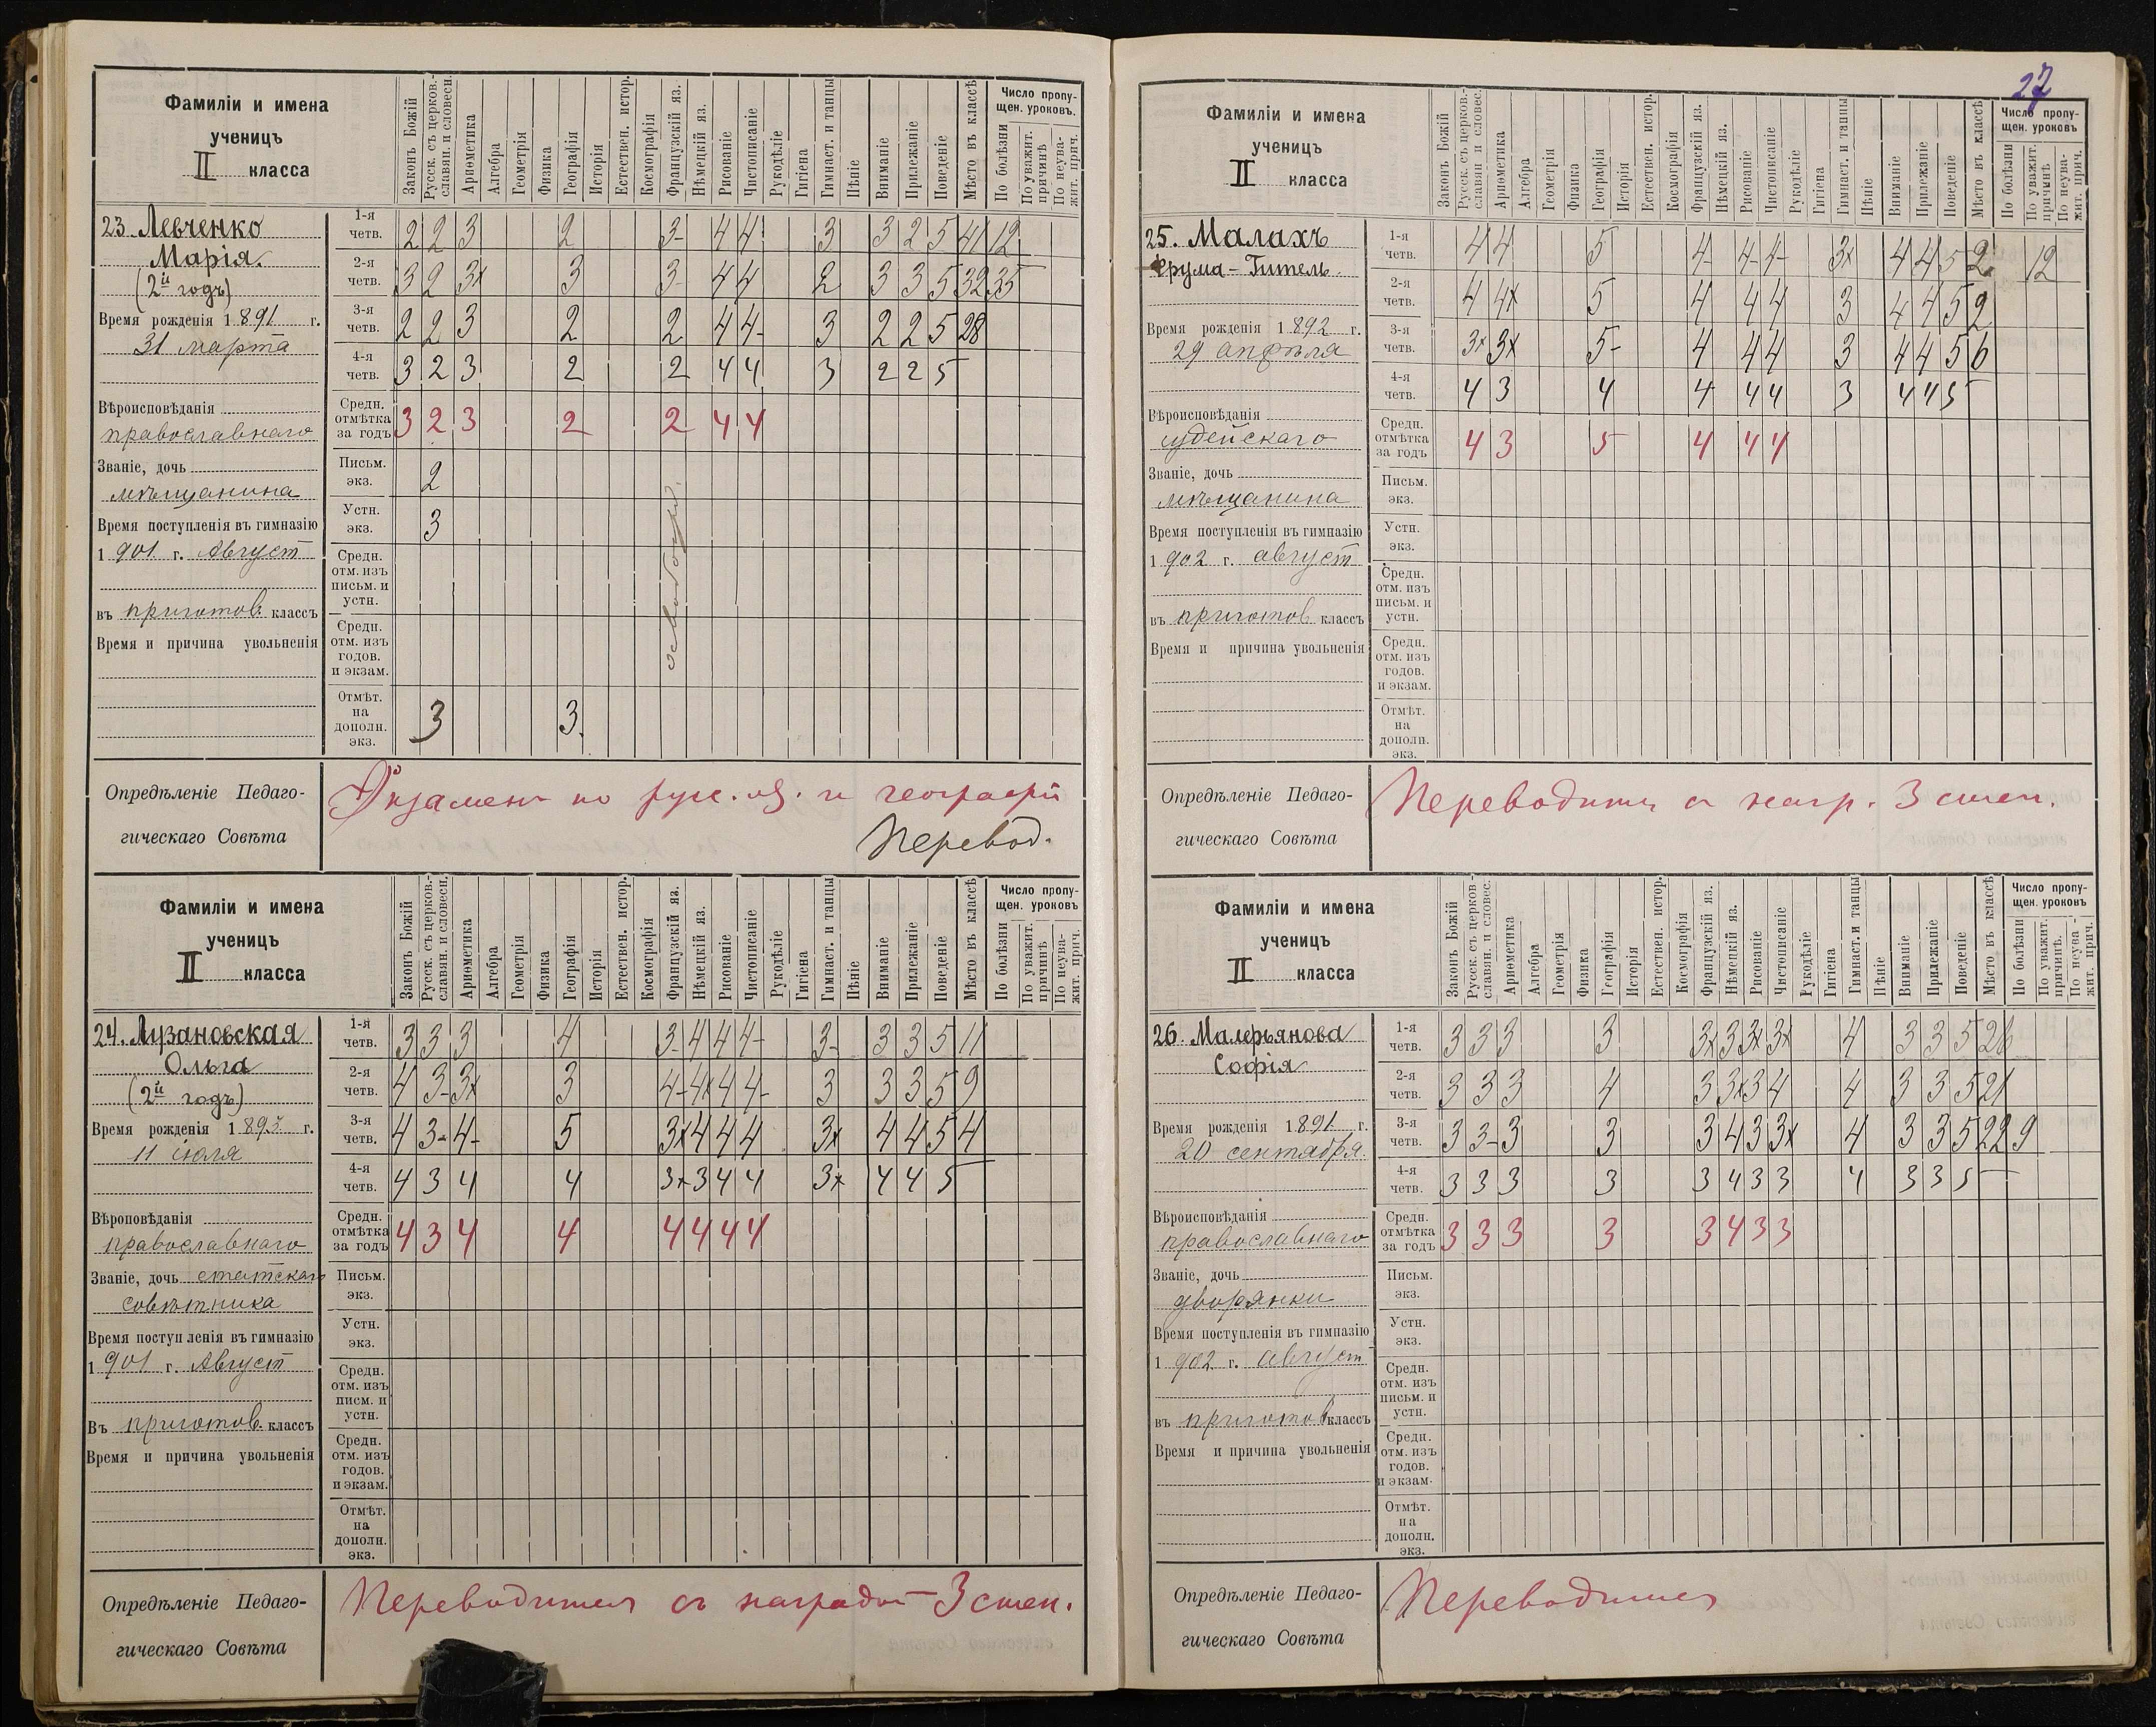 27
Фамиліи и имена
ученицъ
II класса
Законъ Божій
Русск. съ церков.-
славян. и словесн.
Ариѳметика
Алгебра
Геометрія
Физика
Географія
Исторія
Естествен. истор.
Космографія
Французскій яз.
Нѣмецкій яз.
Рисованіе
Чистописаніе
Рукодѣліе
Гигіена
Гимнаст. и танцы
Пѣніе
Вниманіе
Прилежаніе
Поведеніе
Мѣсто въ классѣ
Число пропу-
щен. уроковъ.
По болѣзни
По уважит.
причинѣ
По неува-
жит. прич.
23 Левченко
Марія.
(2й годъ)
Время рожденія 1891 г.
31 марта
Вѣроисповѣданія
православнаго
Званіе, дочь
мѣщанина
Время поступленія въ гимназію
1901 г. Август
въ приготов. классъ
Время и причина увольненія
1-я четв. 2 2 3 2 3- 4 4 3 3 2 5 41 12
2-я четв. 3 2 3х 3 3- 4 4 2 3 3 5 32 35
3-я четв. 2 2 3 2 2 4 4- 3 2 2 5 28
4-я четв. 3 2 3 2 2 4 4 3 2 2 5
Средн. отмѣтка за годъ 3 2 3 2 2 4 4
Письм. экз. 2
Устн. экз. 3
Средн. отм. изъ письм. и устн.
Средн. отм. изъ годов. и экзам.
Отмѣт. на дополн. экз. 3 3.
Опредѣленіе Педаго-
гическаго Совѣта
Экзамен по русс. яз. и географіи
Перевод.
Фамиліи и имена
ученицъ
II класса
Законъ Божій
Русск. съ церков.-
славян. и словесн.
Ариѳметика
Алгебра
Геометрія
Физика
Географія
Исторія
Естествен. истор.
Космографія
Французскій яз.
Нѣмецкій яз.
Рисованіе
Чистописаніе
Рукодѣліе
Гигіена
Гимнаст. и танцы
Пѣніе
Вниманіе
Прилежаніе
Поведеніе
Мѣсто въ классѣ
Число пропу-
щен. уроковъ
По болѣзни
По уважит.
причинѣ
По неува-
жит. прич.
24. Лузановская
Ольга
(2й годъ)
Время рожденія 1893 г.
11 іюля
Вѣроповѣданія
православнаго
Званіе, дочь статскаго
совѣтника
Время поступленія въ гимназію
1901 г. Август
Въ приготов. классъ
Время и причина увольненія
1-я четв. 3 3 3 4 3- 4 4 4- 3- 3 3 5 11
2-я четв. 4 3- 3х 3 4- 4х 4 4- 3 3 3 5 9
3-я четв. 4 3- 4- 5 3х 4 4 4 3х 4 4 5 4
4-я четв. 4 3 4 4 3х 3 4 4 3х 4 4 5
Средн. отмѣтка за годъ 4 3 4 4 4 4 4 4
Письм. экз.
Устн. экз.
Средн. отм. изъ писм. и устн.
Средн. отм. изъ годов. и экзам.
Отмѣт. на дополн. экз.
Опредѣленіе Педаго-
гическаго Совѣта
Переводится съ наградой 3 степ.
Фамиліи и имена
ученицъ
II класса
Законъ Божій
Русск. съ церков.-
славян и словес.
Ариѳметика
Алгебра
Геометрія
Физика
Географія
Исторія
Естествен. истор.
Космографія
Французскій яз.
Нѣмецкій яз.
Рисованіе
Чистописаніе
Рукодѣліе
Гигіена
Гимнаст. и танцы
Пѣніе
Вниманіе
Прилежаніе
Поведеніе
Мѣсто въ классѣ
Число пропу-
щен. уроковъ
По болѣзни
По уважит.
причинѣ
По неува-
жит. прич.
25. Малахъ
Фрума-Гитель.
Время рожденія 1892 г.
29 апрѣля
Вѣроисповѣданія
іудейскаго
Званіе, дочь
мѣщанина
Время поступленія въ гимназію
1902 г. август
въ приготов классъ
Время и причина увольненія
1-я четв. 4 4 5 4- 4- 4- 3х 4 4 5 2 12
2-я четв. 4 4х 5 4 4 4 3 4 4 5 2
3-я четв. 3х 3х 5- 4 4 4 3 4 4 5 6
4-я четв. 4 3 4 4 4 4 3 4 4 5
Средн. отмѣтка за годъ 4 3 5 4 4 4
Письм. экз.
Устн. экз.
Средн. отм. изъ письм. и устн.
Средн. отм. изъ годов. и экзам.
Отмѣт. на дополн. экз.
Опредѣленіе Педаго-
гическаго Совѣта
Переводится с нагр. 3 степ.
Фамиліи и имена
ученицъ
II класса
Законъ Божій
Русск. съ церков.-
славян. и словес.
Ариѳметика
Алгебра
Геометрія
Физика
Географія
Исторія
Естествен. истор.
Космографія
Французскій яз.
Нѣмецкій яз.
Рисованіе
Чистописаніе
Рукодѣліе
Гигіена
Гимнаст. и танцы
Пѣніе
Вниманіе
Прилежаніе
Поведеніе
Мѣсто въ классѣ
Число пропу-
щен. уроковъ
По болѣзни
По уважит.
причинѣ.
По неува-
жит. прич.
26. Малерьянова
Софія
Время рожденія 1891 г.
20 сентября.
Вѣроисповѣданія
православнаго
Званіе, дочь
дворянки
Время поступленія въ гимназію
1902 г. август
въ приготов классъ
Время и причина увольненія
1-я четв. 3 3 3 3 3х 3 3х 3х 4 3 3 5 26
2-я четв. 3 3 3 4 3 3х 3 4 4 3 3 5 21
3-я четв. 3 3- 3 3 3 4 3 3х 4 3 3 5 22 9
4-я четв. 3 3 3 3 3 4 3 3 4 3 3 5
Средн. отмѣтка за годъ 3 3 3 3 3 4 3 3
Письм. экз.
Устн. экз.
Средн. отм. изъ письм. и устн.
Средн. отм. изъ годов. и экзам.
Отмѣт. на дополн. экз.
Опредѣленіе Педаго-
гическаго Совѣта
Переводится